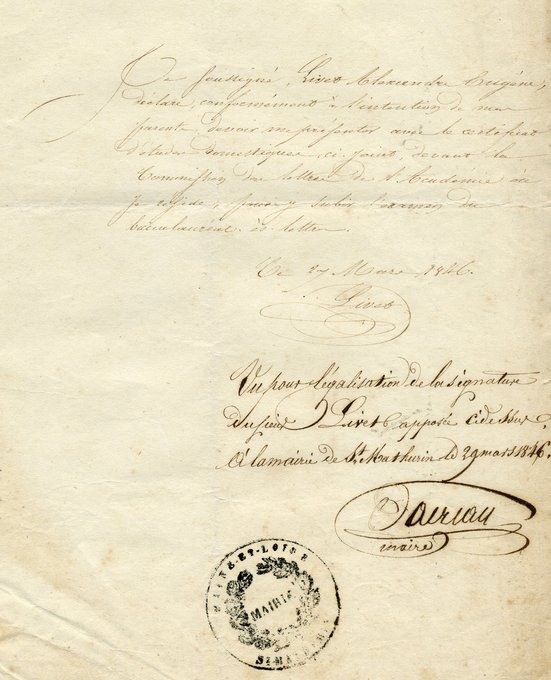 Je soussigné, Livet Alexandre Eugène,
déclare, conformément à l'intention de mes
parents, devoir me présenter avec le certificat
d'études domestiques, ci-joint, devant la
Commission des lettres de l'Académie où
je réside, pour y subir l'examen du
baccalauréat ès-lettres
Le 27 Mars 1846.
Livet
Vu pour légalisation de la signature
du sieur Livet apposée
A la mairie de St Mathurin le 29 mars 1846.
maire
MAINE-ET-LOIRE
MAIRIE